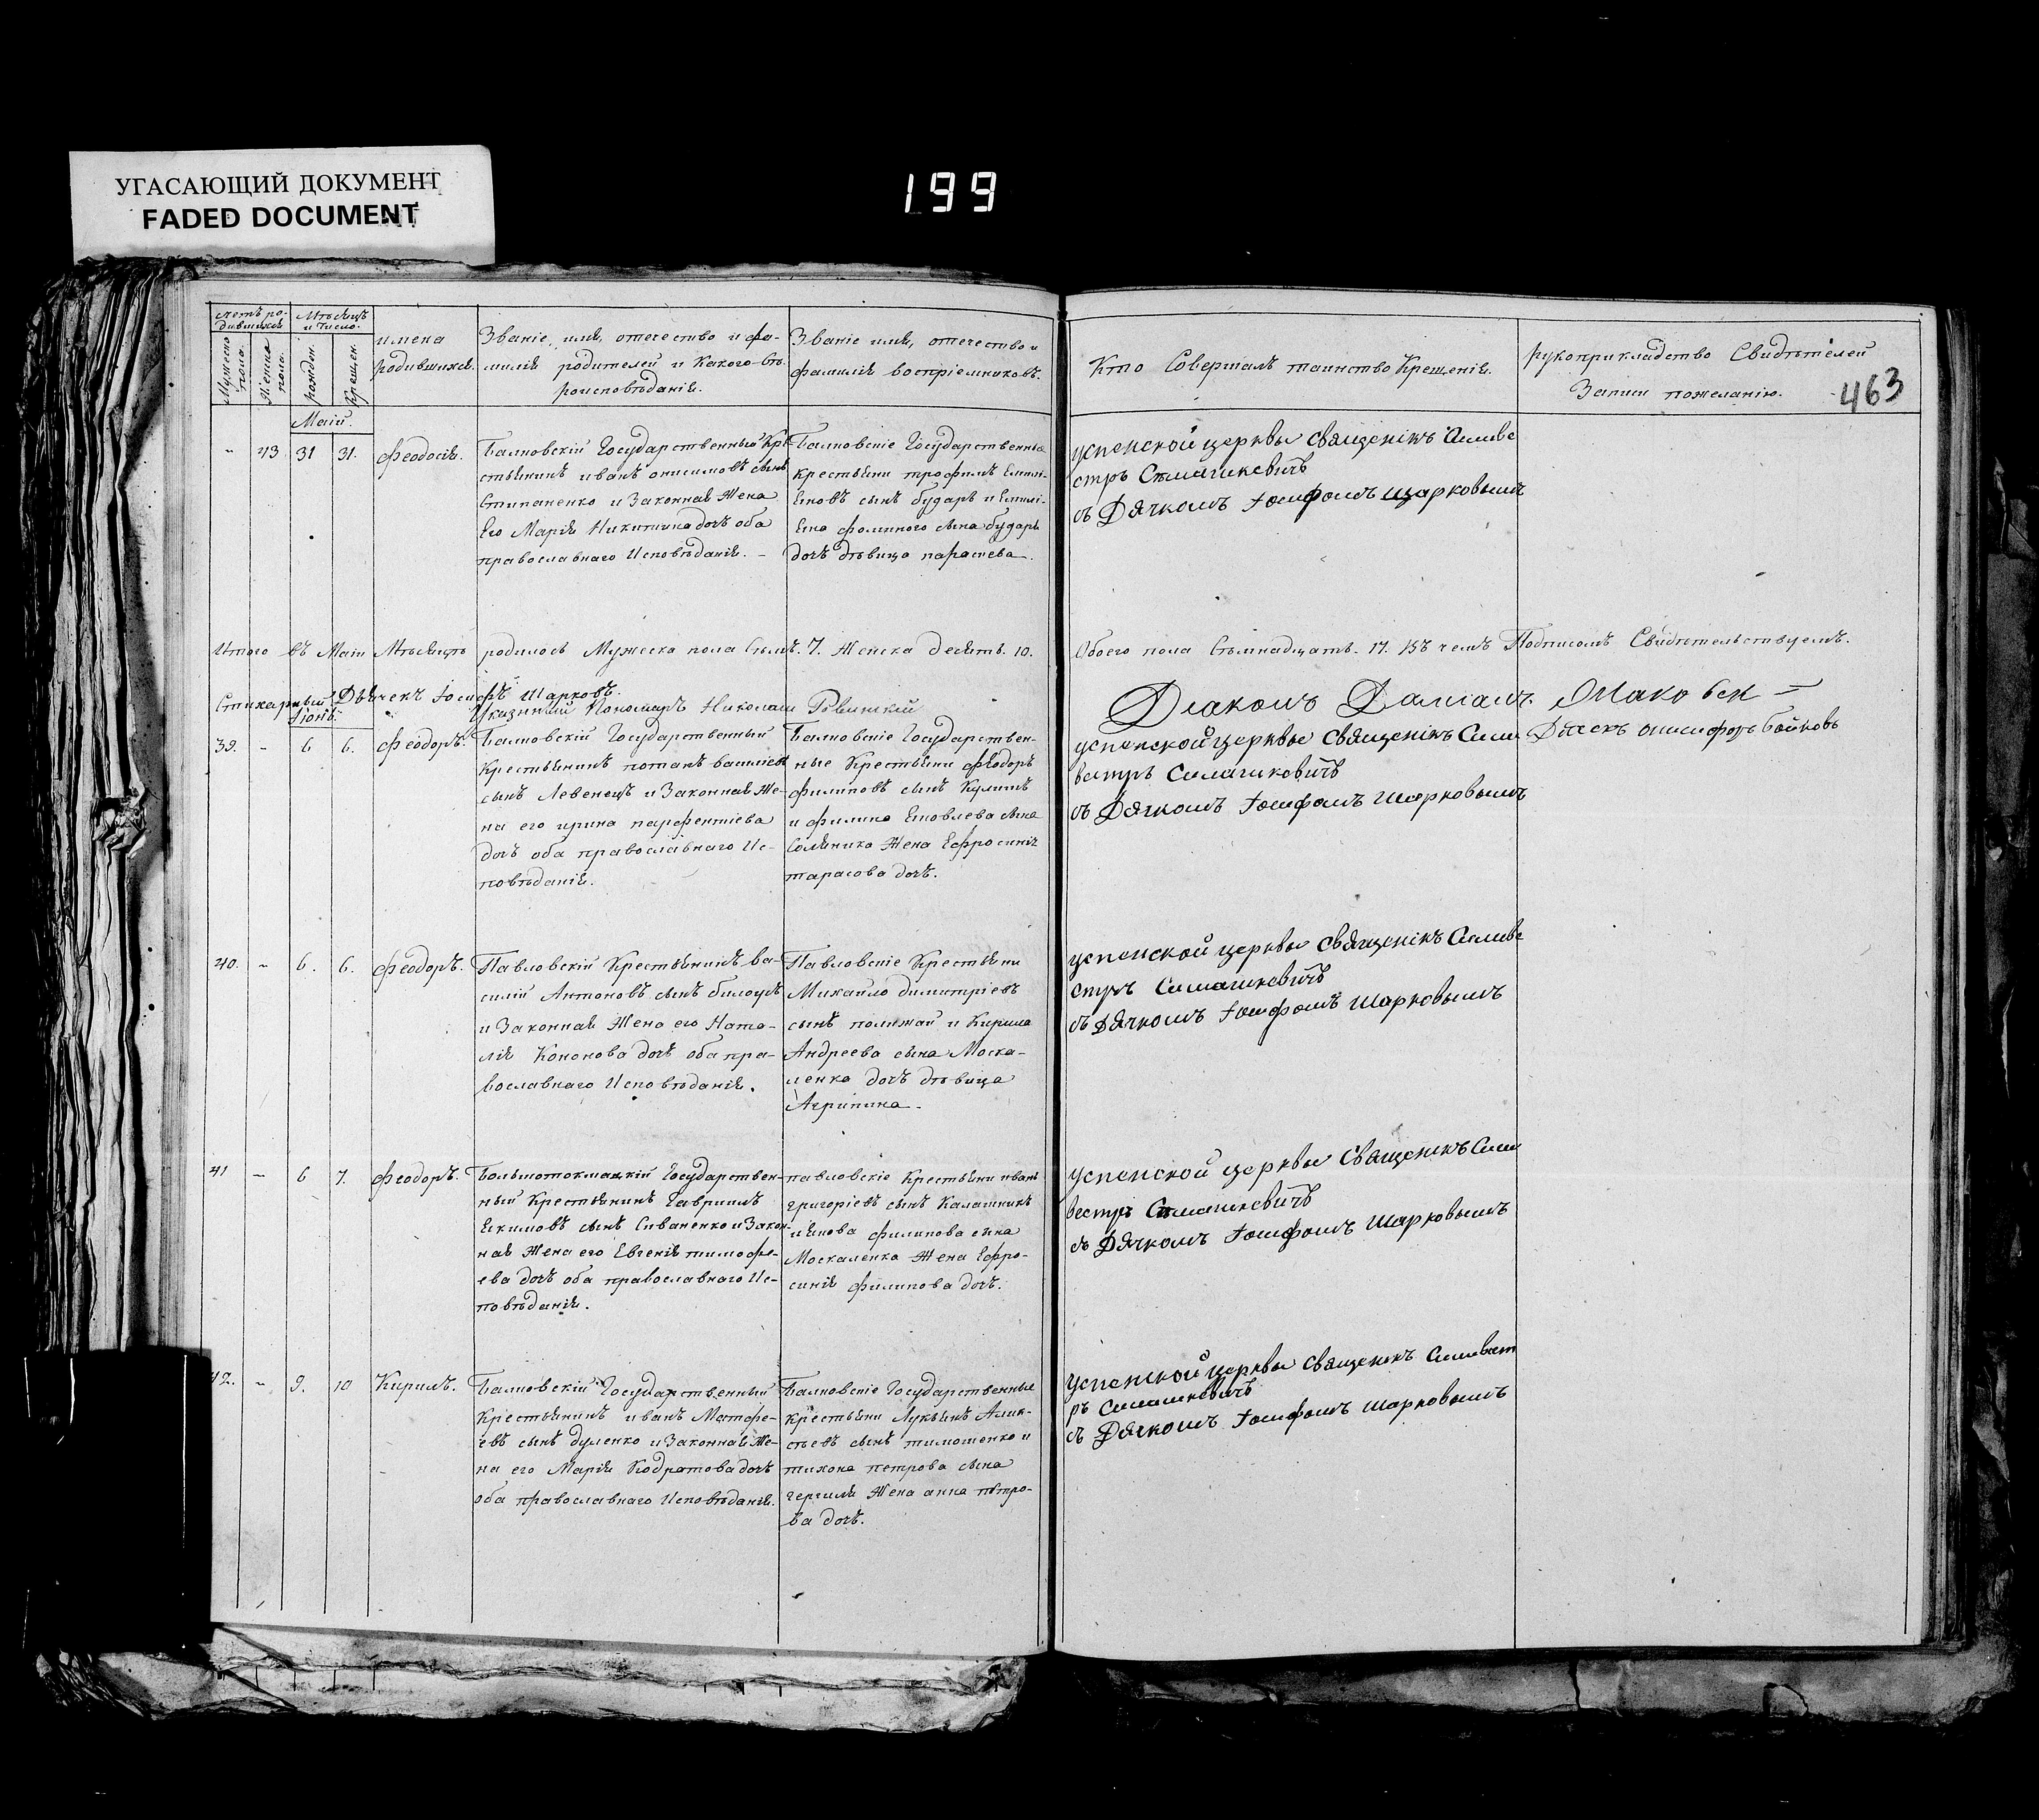 УГАСАЮЩИЙ ДОКУМЕНТ
FADED DOCUMENT
199
463
Счетъ ро-
дившихся
Мѣсяцъ
и число.
Мужеска
пола.
Женска
пола.
рожден.
Крещен.
имена
родившихся.
Званіе, имя, отечество и фа-
милія родителей и Какого вѣ-
роисповѣданія.
Званіе имя, отечество и
фамилія воспріемниковъ.
Кто Совершалъ таинство Крещенія.
рукоприкладство Свидѣтелей
Записи пожеланію.
Маій.
- 43 31 31. Феодосія.
Балковскій Государственный Кре-
стьянинъ иванъ онисимовъ сынъ
Степаненко и Законная Жена
Его Марія Никитина дочь оба
православнаго Исповѣданія. -
Балковскіе Государственные
крестьяни трофимъ Емили-
яновъ сынъ бударъ и Емилі-
яна фоминого сына бударя
дочь дѣвица параскева.
успенской церквы священікъ Силиве
стръ Симашкевичъ
съ Дячкомъ Іосифомъ Шарковымъ
Итого въ Маіи Мѣсяцѣ родилось Мужеска пола Семъ. 7. Женска Десять. 10.
Обоего пола Семнадцать. 17. Въ чемъ Подписомъ Свидѣтельствуемъ.
Стихарный Дьячекъ Іосифъ Шарковъ.
Указнный Пономаръ Николаи Ровинскій
Диаконъ Даміанъ Маковск
Дячекъ онисифоръ бойковъ
Іюнь.
39. - 6 6. Феодоръ.
Балковскій Государственный
Крестьянинъ потапъ васильев
сынъ Левенецъ и Законная Же-
на его ирина парфентіева
дочь оба православнаго Ис-
повѣданія.
Балковскіе Государствен-
ные Крестьяни Феодоръ
филиповъ сынъ Кулишъ
и филипа Яковлева сына
Соляника Жена Ефросинія
тарасова дочь.
успенской церквы священікъ Сили
вестръ Симашковичъ
съ Дячкомъ Іосифомъ Шарковымъ
40. - 6. 6. Феодоръ.
Павловскій Крестьянинъ ва-
силій Антоновъ сынъ билоусъ
и Законная Жена его Ната-
лія Кононова дочь оба пра-
вославнаго Исповѣданія.
Павловскіе Крестьяни
Михайло Димитріевъ
сынъ полежай и Кирила
Андреева сына Моска-
ленка дочь дѣвица
Агрипина.
успенской церквы священікъ Силиве
стръ Симашкевичъ
съ Дячкомъ Іосифомъ Шарковымъ
41 - 6 7. Феодоръ.
Большотокмацкій Государствен-
ный Крестьянинъ Гавриилъ
Екимовъ сынъ Сиваненко и Закон-
ная Жена его Евгенія тимофе-
ева дочь оба православнаго Ис-
повѣданія.
павловскіе Крестьяни иванъ
григоріевъ сынъ Калашникъ
и Якова филипова сына
Москаленка Жена Ефро-
синія филипова дочь.
успенской церквы Священікъ Сили
вестръ Симашкевичъ
съ Дячкомъ Іосифомъ Шарковымъ
42. - 9. 10 Кирилъ.
Балковскій Государственный
Крестьянинъ иванъ Матфе-
евъ сынъ дуленко и Законная Же-
на его Марія Кодратова дочь
оба православнаго Исповѣданія.
Балковскіе Государственные
крестьяни Лукьянъ Алик-
сѣевъ сынъ тимошенко и
тихона петрова сына
Жена анна пѣтро-
ва дочь.
успенской церквы священікъ Силивест
ръ Симашкевичъ
съ Дячкомъ Іосифомъ Шарковымъ